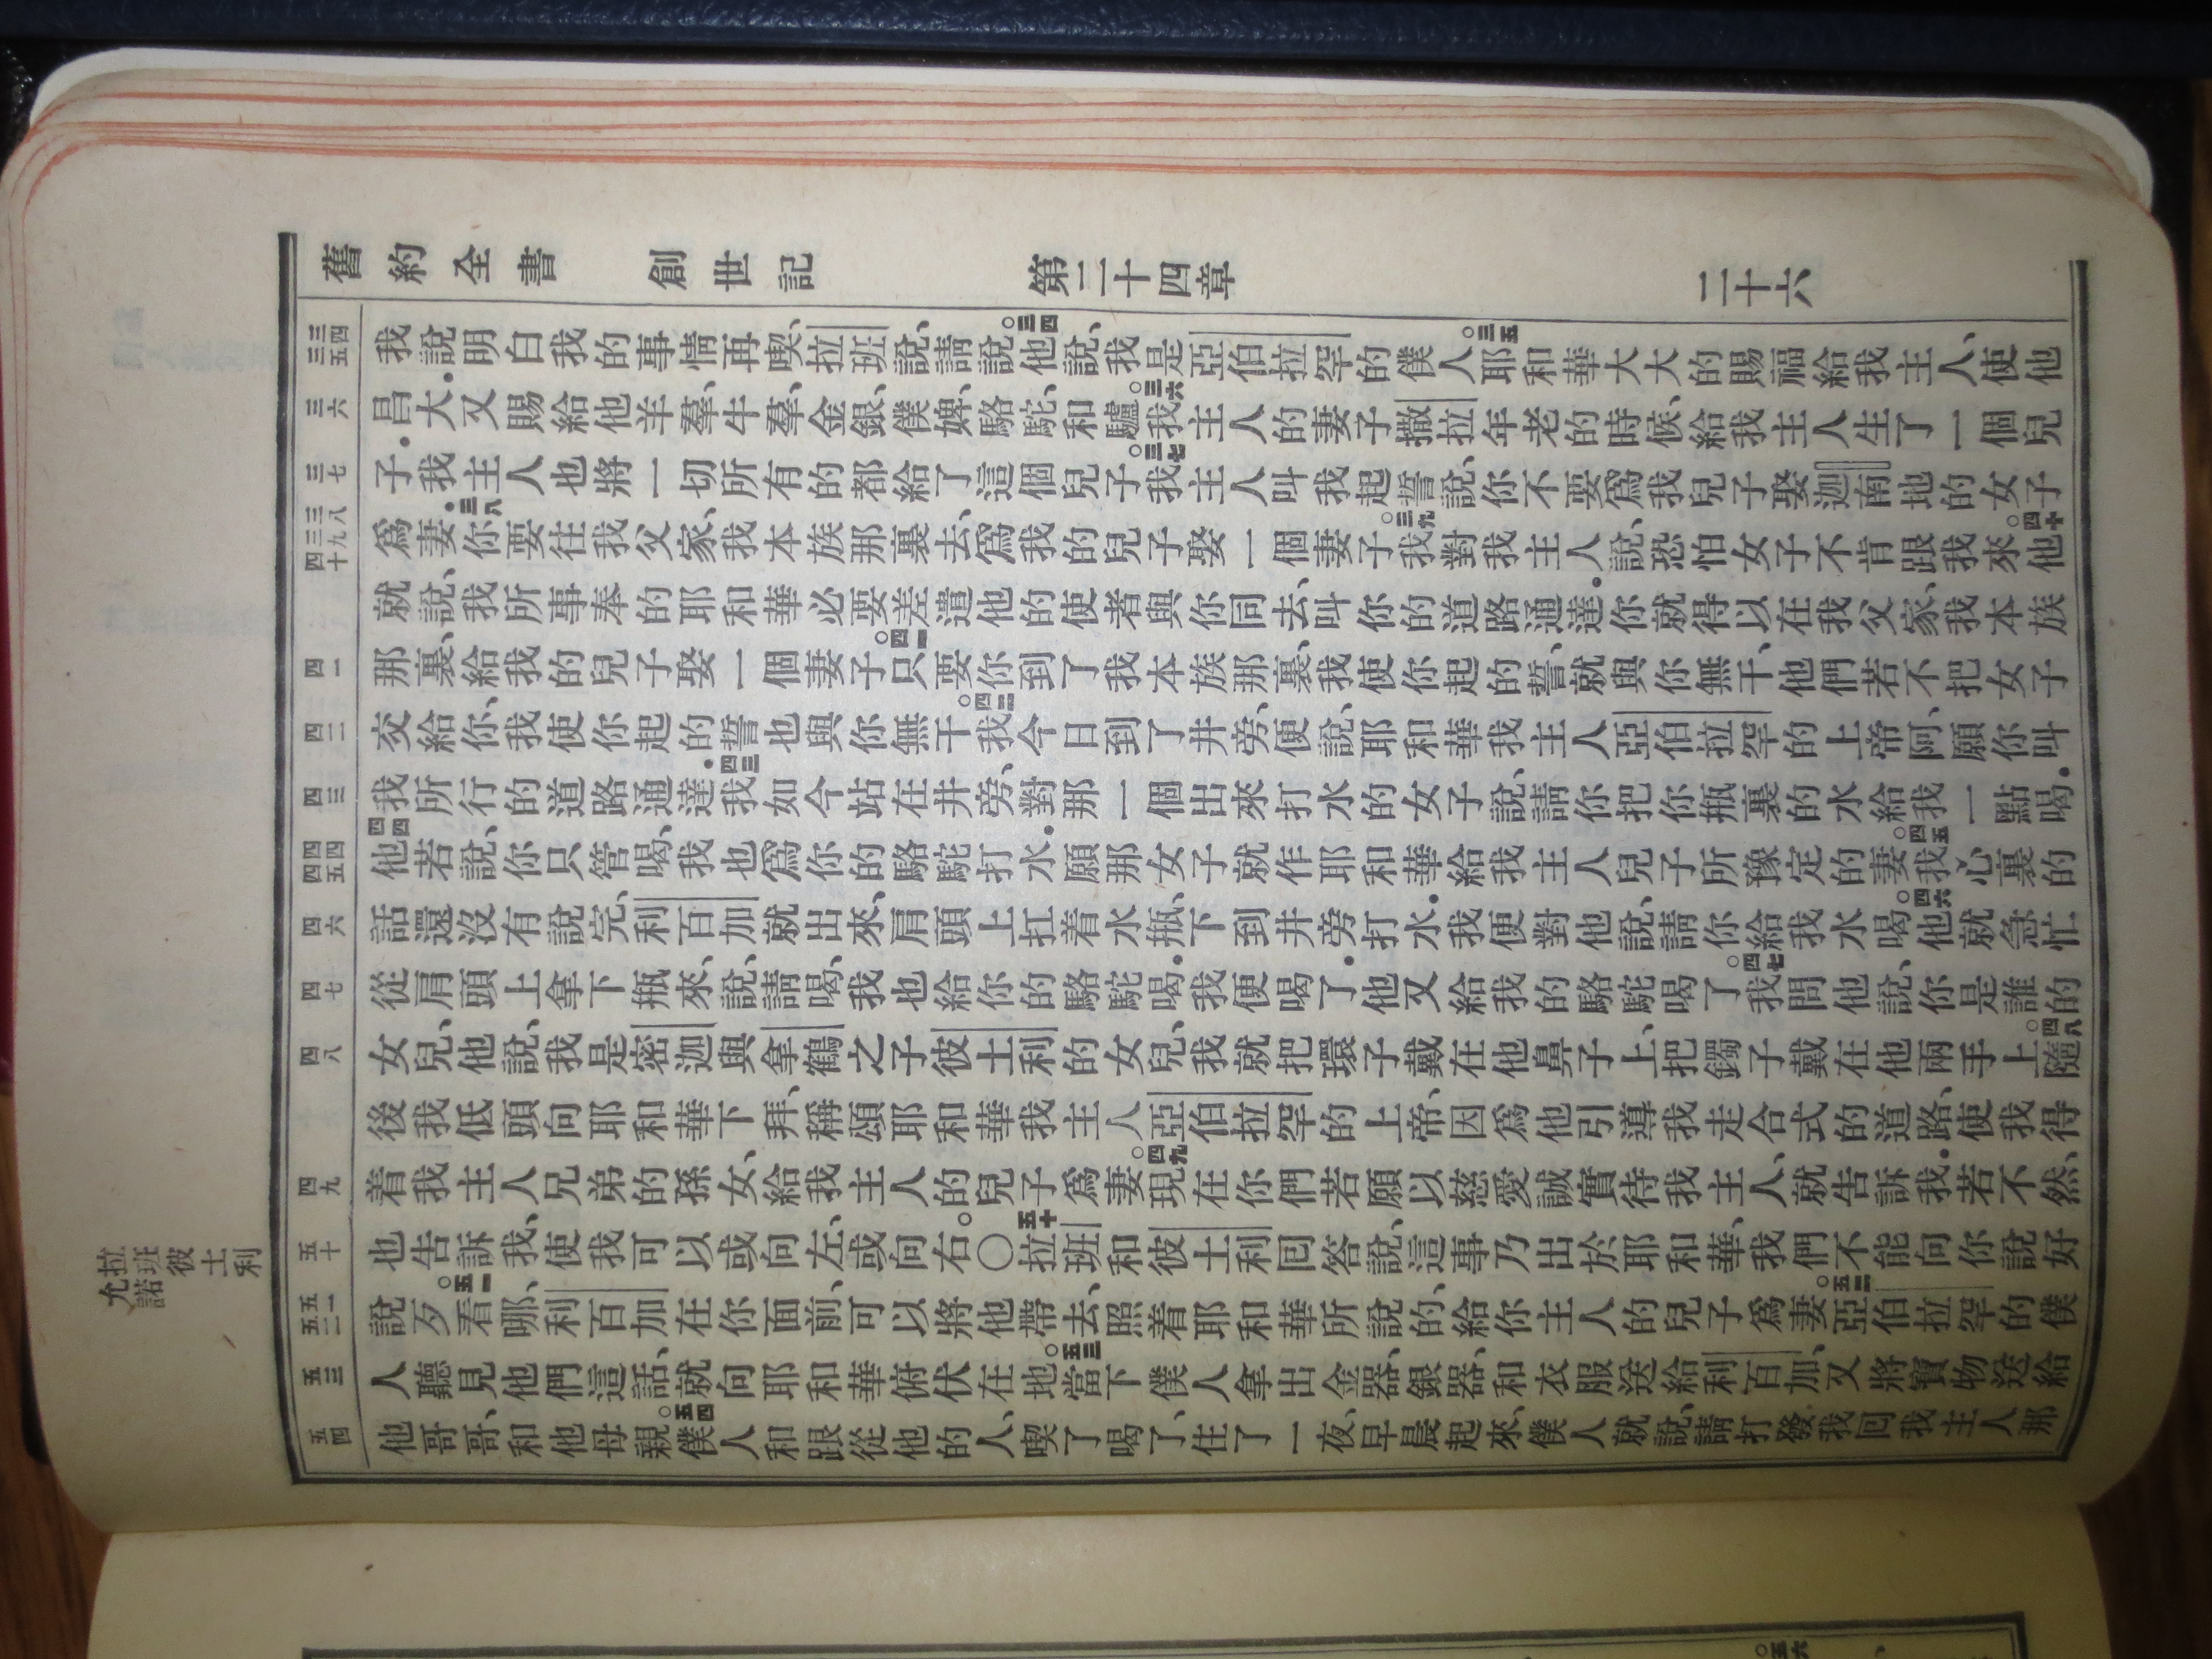 舊約全書 創世記 第二十四章 二十六
三四 三五
三六
三七
三八 三九 四十
四一
四二
四三
四四 四五
四六
四七
四八
四九
五十
五一 五二
五三
五四
拉班彼土利
允諾
我說、明白我的事情再喫、拉班說、請說。三四他說、我是亞伯拉罕的僕人。三五耶和華大大的賜福給我主人、使他
昌大.又賜給他羊羣、牛羣、金銀、僕婢、駱駝、和驢。三六我主人的妻子撒拉年老的時候、給我主人生了一個兒
子.我主人也將一切所有的都給了這個兒子。三七我主人叫我起誓說、你不要爲我兒子娶迦南地的女子
爲妻.三八你要往我父家、我本族那裏去、爲我的兒子娶一個妻子。三九我對我主人說、恐怕女子不肯跟我來。四十他
就說、我所事奉的耶和華必要差遣他的使者與你同去、叫你的道路通達.你就得以在我父家、我本族
那裏、給我的兒子娶一個妻子。四一只要你到了我本族那裏、我使你起的誓、就與你無干、他們若不把女子
交給你、我使你起的誓也與你無干。四二我今日到了井旁、便說、耶和華我主人亞伯拉罕的上帝阿、願你叫
我所行的道路通達.四三我如今站在井旁、對那一個出來打水的女子說、請你把你瓶裏的水給我一點喝.
四四他若說、你只管喝、我也爲你的駱駝打水.願那女子就作耶和華給我主人兒子所豫定的妻。四五我心裏的
話還沒有說完、利百加就出來、肩頭上扛着水瓶、下到井旁打水.我便對他說、請你給我水喝。四六他就急忙
從肩頭上拿下瓶來、說、請喝、我也給你的駱駝喝.我便喝了.他又給我的駱駝喝了。四七我問他說、你是誰的
女兒、他說、我是密迦與拿鶴之子彼土利的女兒、我就把環子戴在他鼻子上、把鐲子戴在他兩手上。四八隨
後我低頭向耶和華下拜、稱頌耶和華我主人亞伯拉罕的上帝、因爲他引導我走合式的道路、使我得
着我主人兄弟的孫女、給我主人的兒子爲妻。四九現在你們若願以慈愛誠實待我主人、就告訴我.若不然、
也告訴我、使我可以或向左、或向右。〇五十拉班和彼土利回答說、這事乃出於耶和華、我們不能向你說好
說歹。五一看哪、利百加在你面前、可以將他帶去、照着耶和華所說的、給你主人的兒子爲妻。五二亞伯拉罕的僕
人聽見他們這話、就向耶和華俯伏在地。五三當下僕人拿出金器、銀器、和衣服送給利百加、又將寶物送給
他哥哥、和他母親。五四僕人和跟從他的人、喫了喝了、住了一夜、早晨起來、僕人就說、請打發我回我主人那